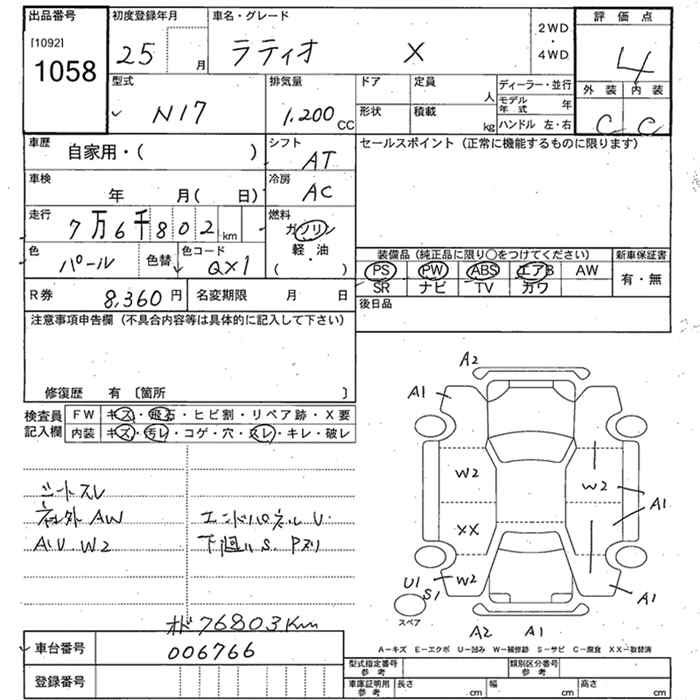 出品番号
[1092]
1058
初度登録年月
25 月
車名・グレード
ラティオ X
2WD
・
4WD
評価点
4
外装 内装
C C
型式
N17
排気量
1.200 CC
ドア
定員 人
形状
積載 kg
ディーラー・並行
モデル年式 年
ハンドル 左・右
車歴
自家用・( )
シフト
AT
車検
年 月( 日)
冷房
AC
走行
7万6千802 km
燃料
ガソリン
・
軽・油
( )
色
パール
色替
色コード
QX1
セールスポイント (正常に機能するものに限ります)
装備品 (純正品に限り○をつけてください)
新車保証書
PS PW ABS エアB AW
SR ナビ TV カワ
有・無
R券 8,360 円
名変期限 月 日
後日品
注意事項申告欄 (不具合内容等は具体的に記入して下さい)
修復歴 有 〔箇所 〕
検査員
記入欄
FW キズ・飛石・ヒビ割・リペア跡・X要
内装 キズ・汚レ・コゲ・穴・スレ・キレ・破レ
シートスレ
社外AW
AIU.W2
エンドパネルU.
下廻りS.Pズリ
オド76803Km
A2
A1
W2
W2
A1
XX
W2
U1
S1
スペア
A1
A2 A1
A―キズ E―エクボ U―凹み W―補修跡 S―サビ C―腐食 XX―取替済
車台番号 006766
登録番号
型式指定番号
参考
類別区分番号
参考
車庫証明用
参考
長さ cm
幅 cm
高さ cm